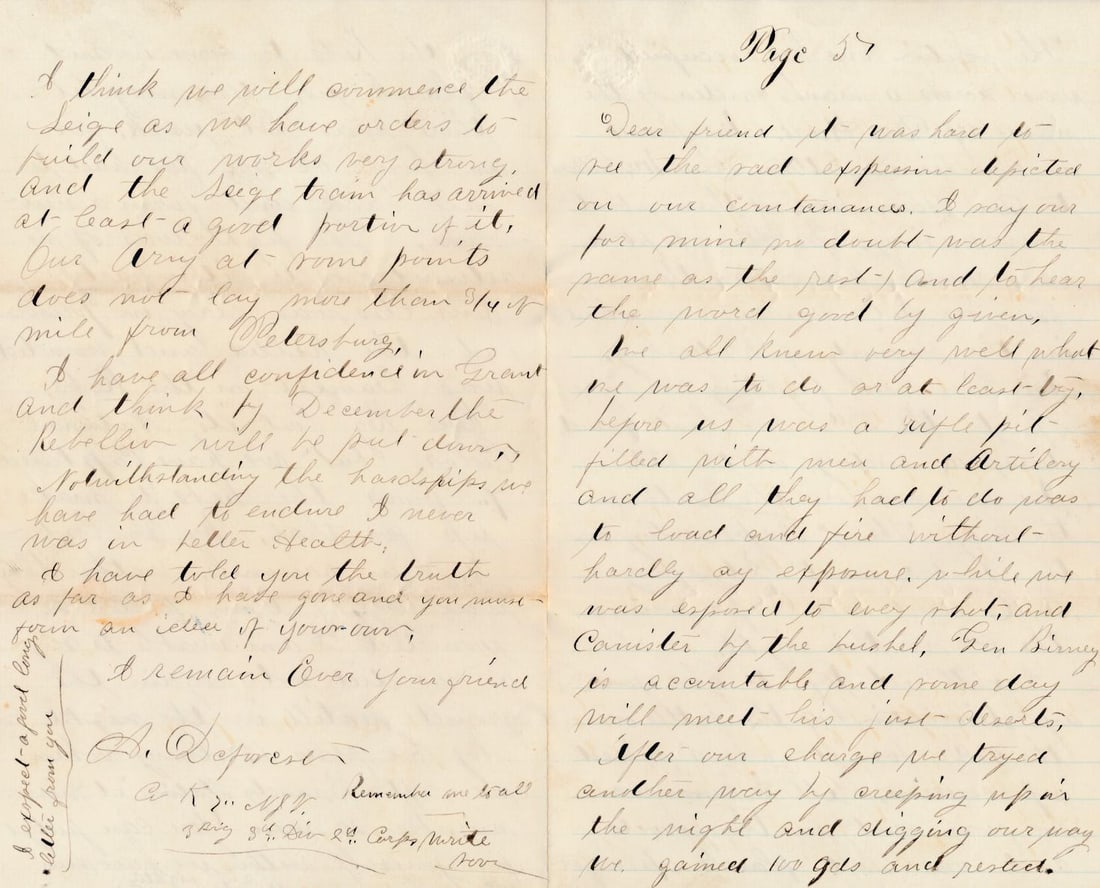 I think we will commence the
Seige as we have orders to
build our works very strong,
and the seige train has arrived
at least a good portion of it,
Our Army at some points
does not lay more than 3/4 of
mile from Petersburg,
I have all confidence in Grant
and think by December the
Rebellion will be put down,
Notwithstanding the hardships we
have had to endure I never
was in better Health,
I have told you the truth
as far as I have gone and you must
form an idea of your own,
I remain Ever Your friend
A. Deforest
Co K 7" N J V
3 Brig 3d Div 2d Corps
Remember me to all
Write
soon
I expect a good long
letter from you
Page 5
Dear friend it was hard to
see the sad expession depicted
on our countanances. I say our
for mine no doubt was the
same as the rest, and to hear
the word good by given,
We all knew very well what
we was to do or at least try,
before us was a rifle pit
filled with men and Artilery
and all they had to do was
to load and fire without
hardly ay exposure. while we
was exposed to evey shot, and
Canister by the bushel, Gen Birney
is accountable and some day
will meet his just deserts,
After our charge we tryed
another way by creeping up in
the night and digging our way
we gained 100 yds and rested.